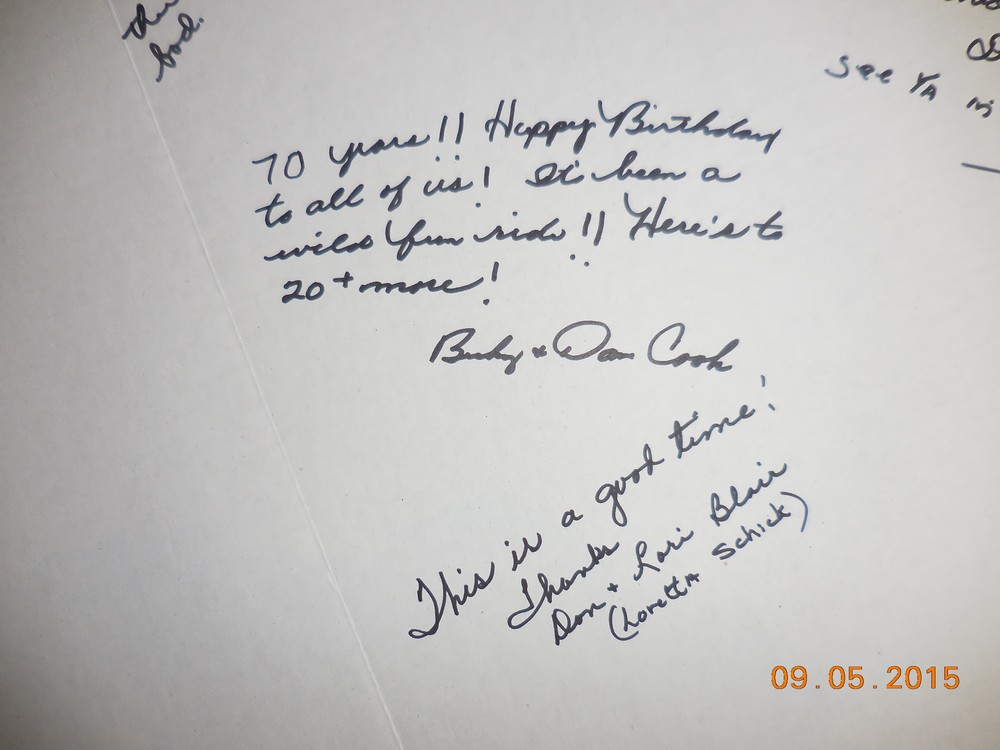 bod.
See YA in
70 years!! Happy Birthday
to all of us! It's been a
wild fun ride!! Here's to
20+ more!
& Cook
This is a good time!
Thanks
Don + Lori Blair
(Loretta Schick)
09.05.2015